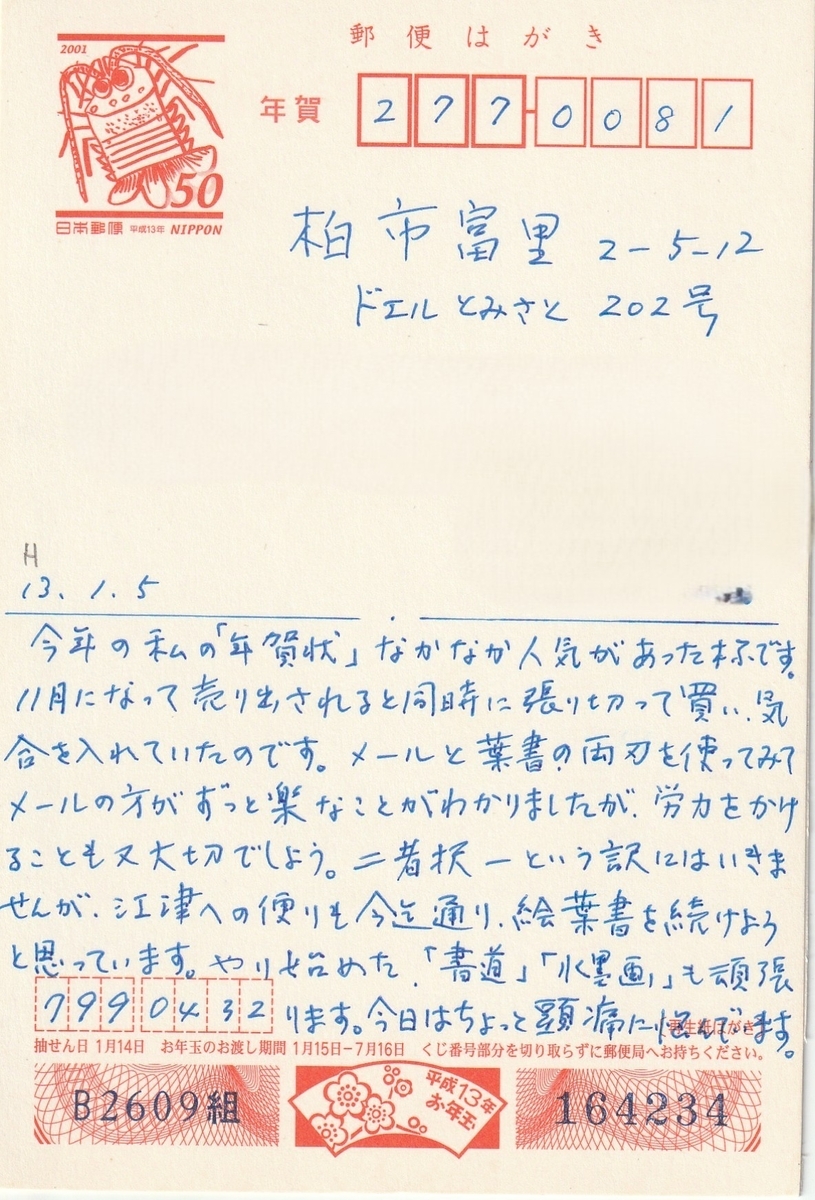 郵便はがき
2001
年賀
277-0081
50
日本郵便 平成13年 NIPPON
柏市富里 2-5-12
ドエルとみさと 202号
H
13.1.5
今年の私の「年賀状」なかなか人気があった様です。
11月になって売り出されると同時に張り切って買い、気
合を入れていたのです。メールと葉書の両刃を使ってみて
メールの方がずっと楽なことがわかりましたが、労力をかけ
ることも又大切でしょう。二者択一という訳にはいきま
せんが、江津への便りも今迄通り、絵葉書を続けよう
と思っています。やり始めた、「書道」「水墨画」も頑張
7990432
ります。今日はちょっと頭痛に悩んでます。
再生紙はがき
抽せん日 1月14日 お年玉のお渡し期間 1月15日-7月16日 くじ番号部分を切り取らずに郵便局へお持ちください。
B2609組
平成13年
お年玉
164234